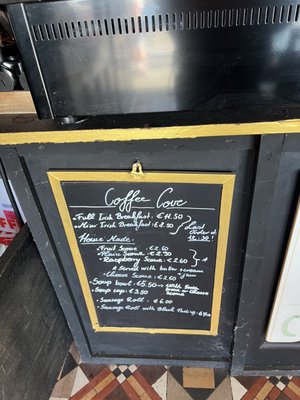 Coffee Cove
Full Irish Breakfast. €11.50
Mini Irish Breakfast. €8.50
Last order at 12:30!
Home Made.
Fruit Scone. €2.60
Plain Scone. €2.30
Raspberry Scone. €2.60
served with butter cream jam
Cheese Scone.
Soup bowl. €5.50 with
scone or cheese scone
Soup cup. €3.50
Sausage Roll. €6.00
Sausage Roll with Black Pudding